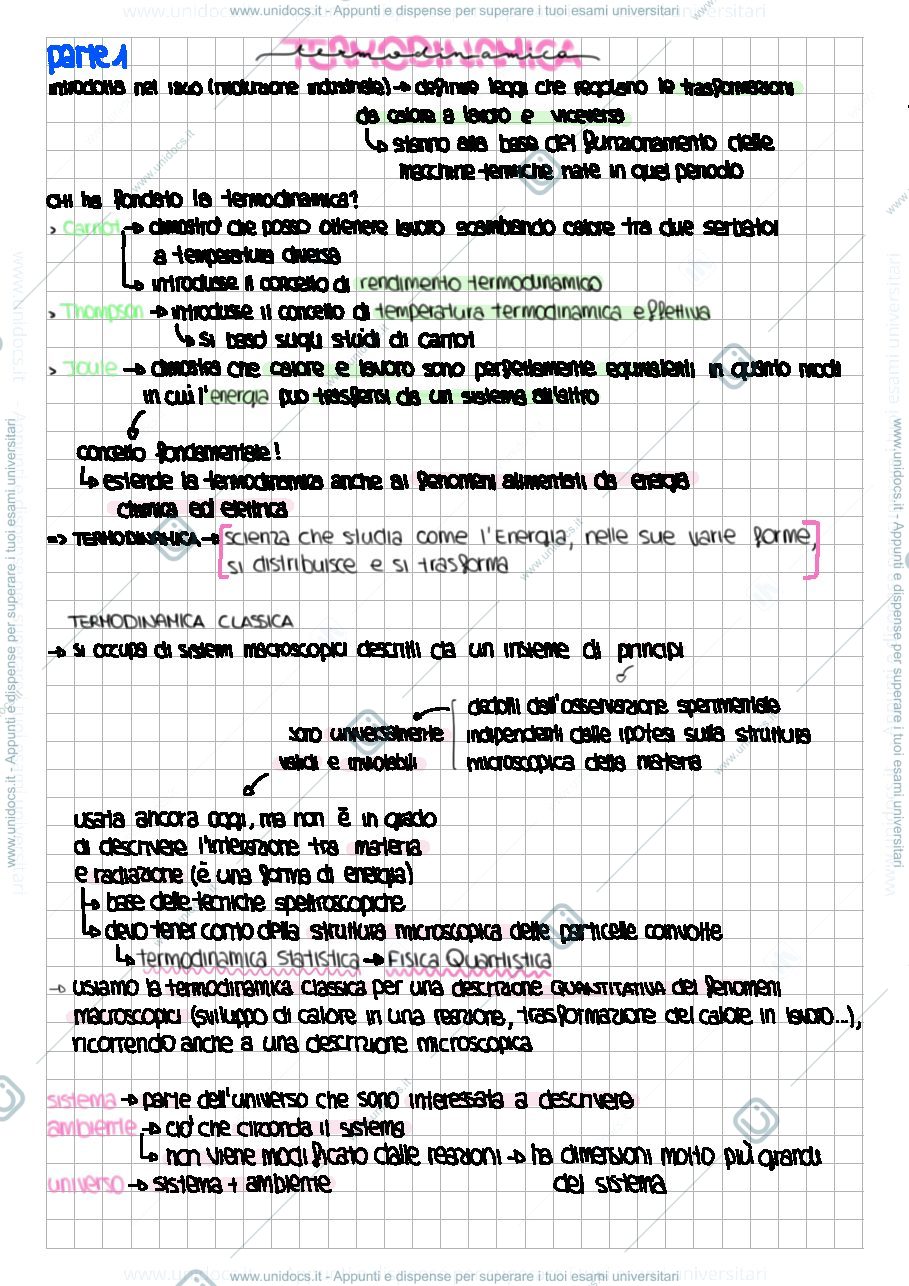 www.unidocs.it - Appunti e dispense per superare i tuoi esami universitari
parte 1
termodinamica
TERMODINAMICA
introdotta nel (rivoluzione industriale) → definire leggi che regolano le trasformazioni
da calore a lavoro e viceversa
↳ stanno alla base del funzionamento delle
macchine termiche nate in quel periodo
CHI ha fondato la termodinamica?
> Carnot → dimostrò che posso ottenere lavoro scambiando calore tra due serbatoi
a temperatura diversa
↳ introdusse il concetto di rendimento termodinamico
> Thompson → introdusse il concetto di temperatura termodinamica effettiva
↳ si basò sugli studi di Carnot
> Joule → dimostra che calore e lavoro sono perfettamente equivalenti in quanto modi
in cui l'energia può trasferirsi da un sistema all'altro
concetto fondamentale!
↳ estende la termodinamica anche ai fenomeni alimentati da energia
chimica ed elettrica
=> TERMODINAMICA → [scienza che studia come l'Energia, nelle sue varie forme,
si distribuisce e si trasforma]
TERMODINAMICA CLASSICA
→ si occupa di sistemi macroscopici descritti da un insieme di principi
dedotti dall'osservazione sperimentale
sono universalmente
indipendenti dalle ipotesi sulla struttura
validi e inviolabili
microscopica della materia
usata ancora oggi, ma non è in grado
di descrivere l'interazione tra materia
e radiazione (è una forma di energia)
↳ base delle tecniche spettroscopiche
↳ devo tener conto della struttura microscopica delle particelle coinvolte
↳ termodinamica Statistica → Fisica Quantistica
→ usiamo la termodinamica classica per una descrizione QUANTITATIVA dei fenomeni
macroscopici (sviluppo di calore in una reazione, trasformazione del calore in lavoro...),
ricorrendo anche a una descrizione microscopica
sistema → parte dell'universo che sono interessata a descrivere
ambiente → ciò che circonda il sistema
↳ non viene modificato dalle reazioni → ha dimensioni molto più grandi
del sistema
universo → sistema + ambiente
www.unidocs.it - Appunti e dispense per superare i tuoi esami universitari